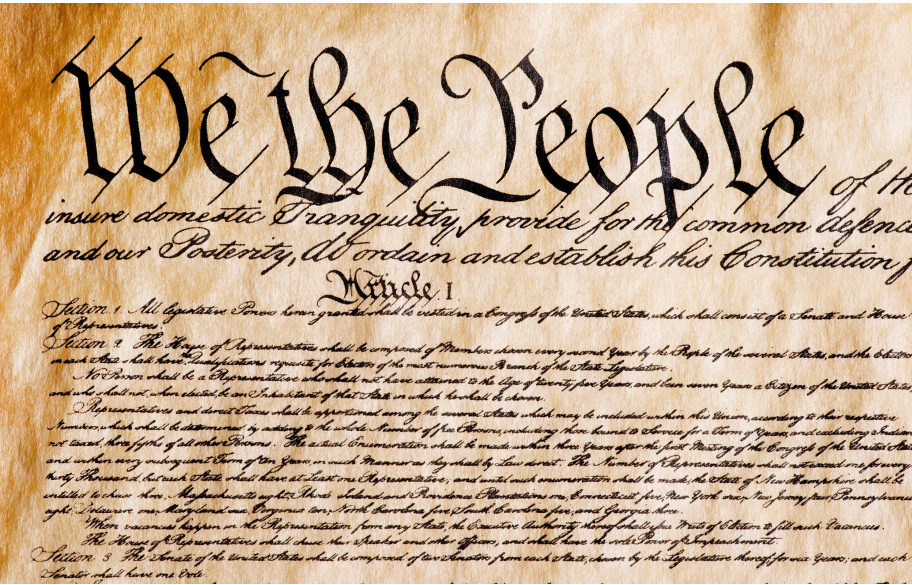 We the People of the
insure domestic Tranquility, provide for the common defence
and our Posterity, do ordain and establish this Constitution f
Article I
Section 1 All legislative Powers herein granted shall be vested in a Congress of the United States, which shall consist of a Senate and House
of Representatives
Section 2 The House of Representatives shall be composed of Members chosen every second Year by the People of the several States, and the Electors
in each State shall have Qualifications requisite for Electors of the most numerous Branch of the State Legislature.
No Person shall be a Representative who shall not have attained to the Age of twenty five Years, and been seven Years a Citizen of the United States
and who shall not, when elected, be an Inhabitant of that State in which he shall be chosen.
Representatives and direct Taxes shall be apportioned among the several States which may be included within this Union, according to their respective
Numbers, which shall be determined by adding to the whole Number of free Persons, including those bound to Service for a Term of Years, and excluding Indians
not taxed, three fifths of all other Persons. The actual Enumeration shall be made within three Years after the first Meeting of the Congress of the United States
and within every subsequent Term of ten Years, in such Manner as they shall by Law direct. The Number of Representatives shall not exceed one for every
thirty Thousand, but each State shall have at Least one Representative; and until such enumeration shall be made, the State of New Hampshire shall be
entitled to chuse three, Massachusetts eight, Rhode Island and Providence Plantations one, Connecticut five, New York six, New Jersey four, Pennsylvania
eight, Delaware one, Maryland six, Virginia ten, North Carolina five, South Carolina five, and Georgia three.
When vacancies happen in the Representation from any State, the Executive Authority thereof shall issue Writs of Election to fill such Vacancies.
The House of Representatives shall chuse their Speaker and other Officers, and shall have the sole Power of Impeachment.
Section 3 The Senate of the United States shall be composed of two Senators from each State, chosen by the Legislature thereof, for six Years; and each
Senator shall have one Vote.